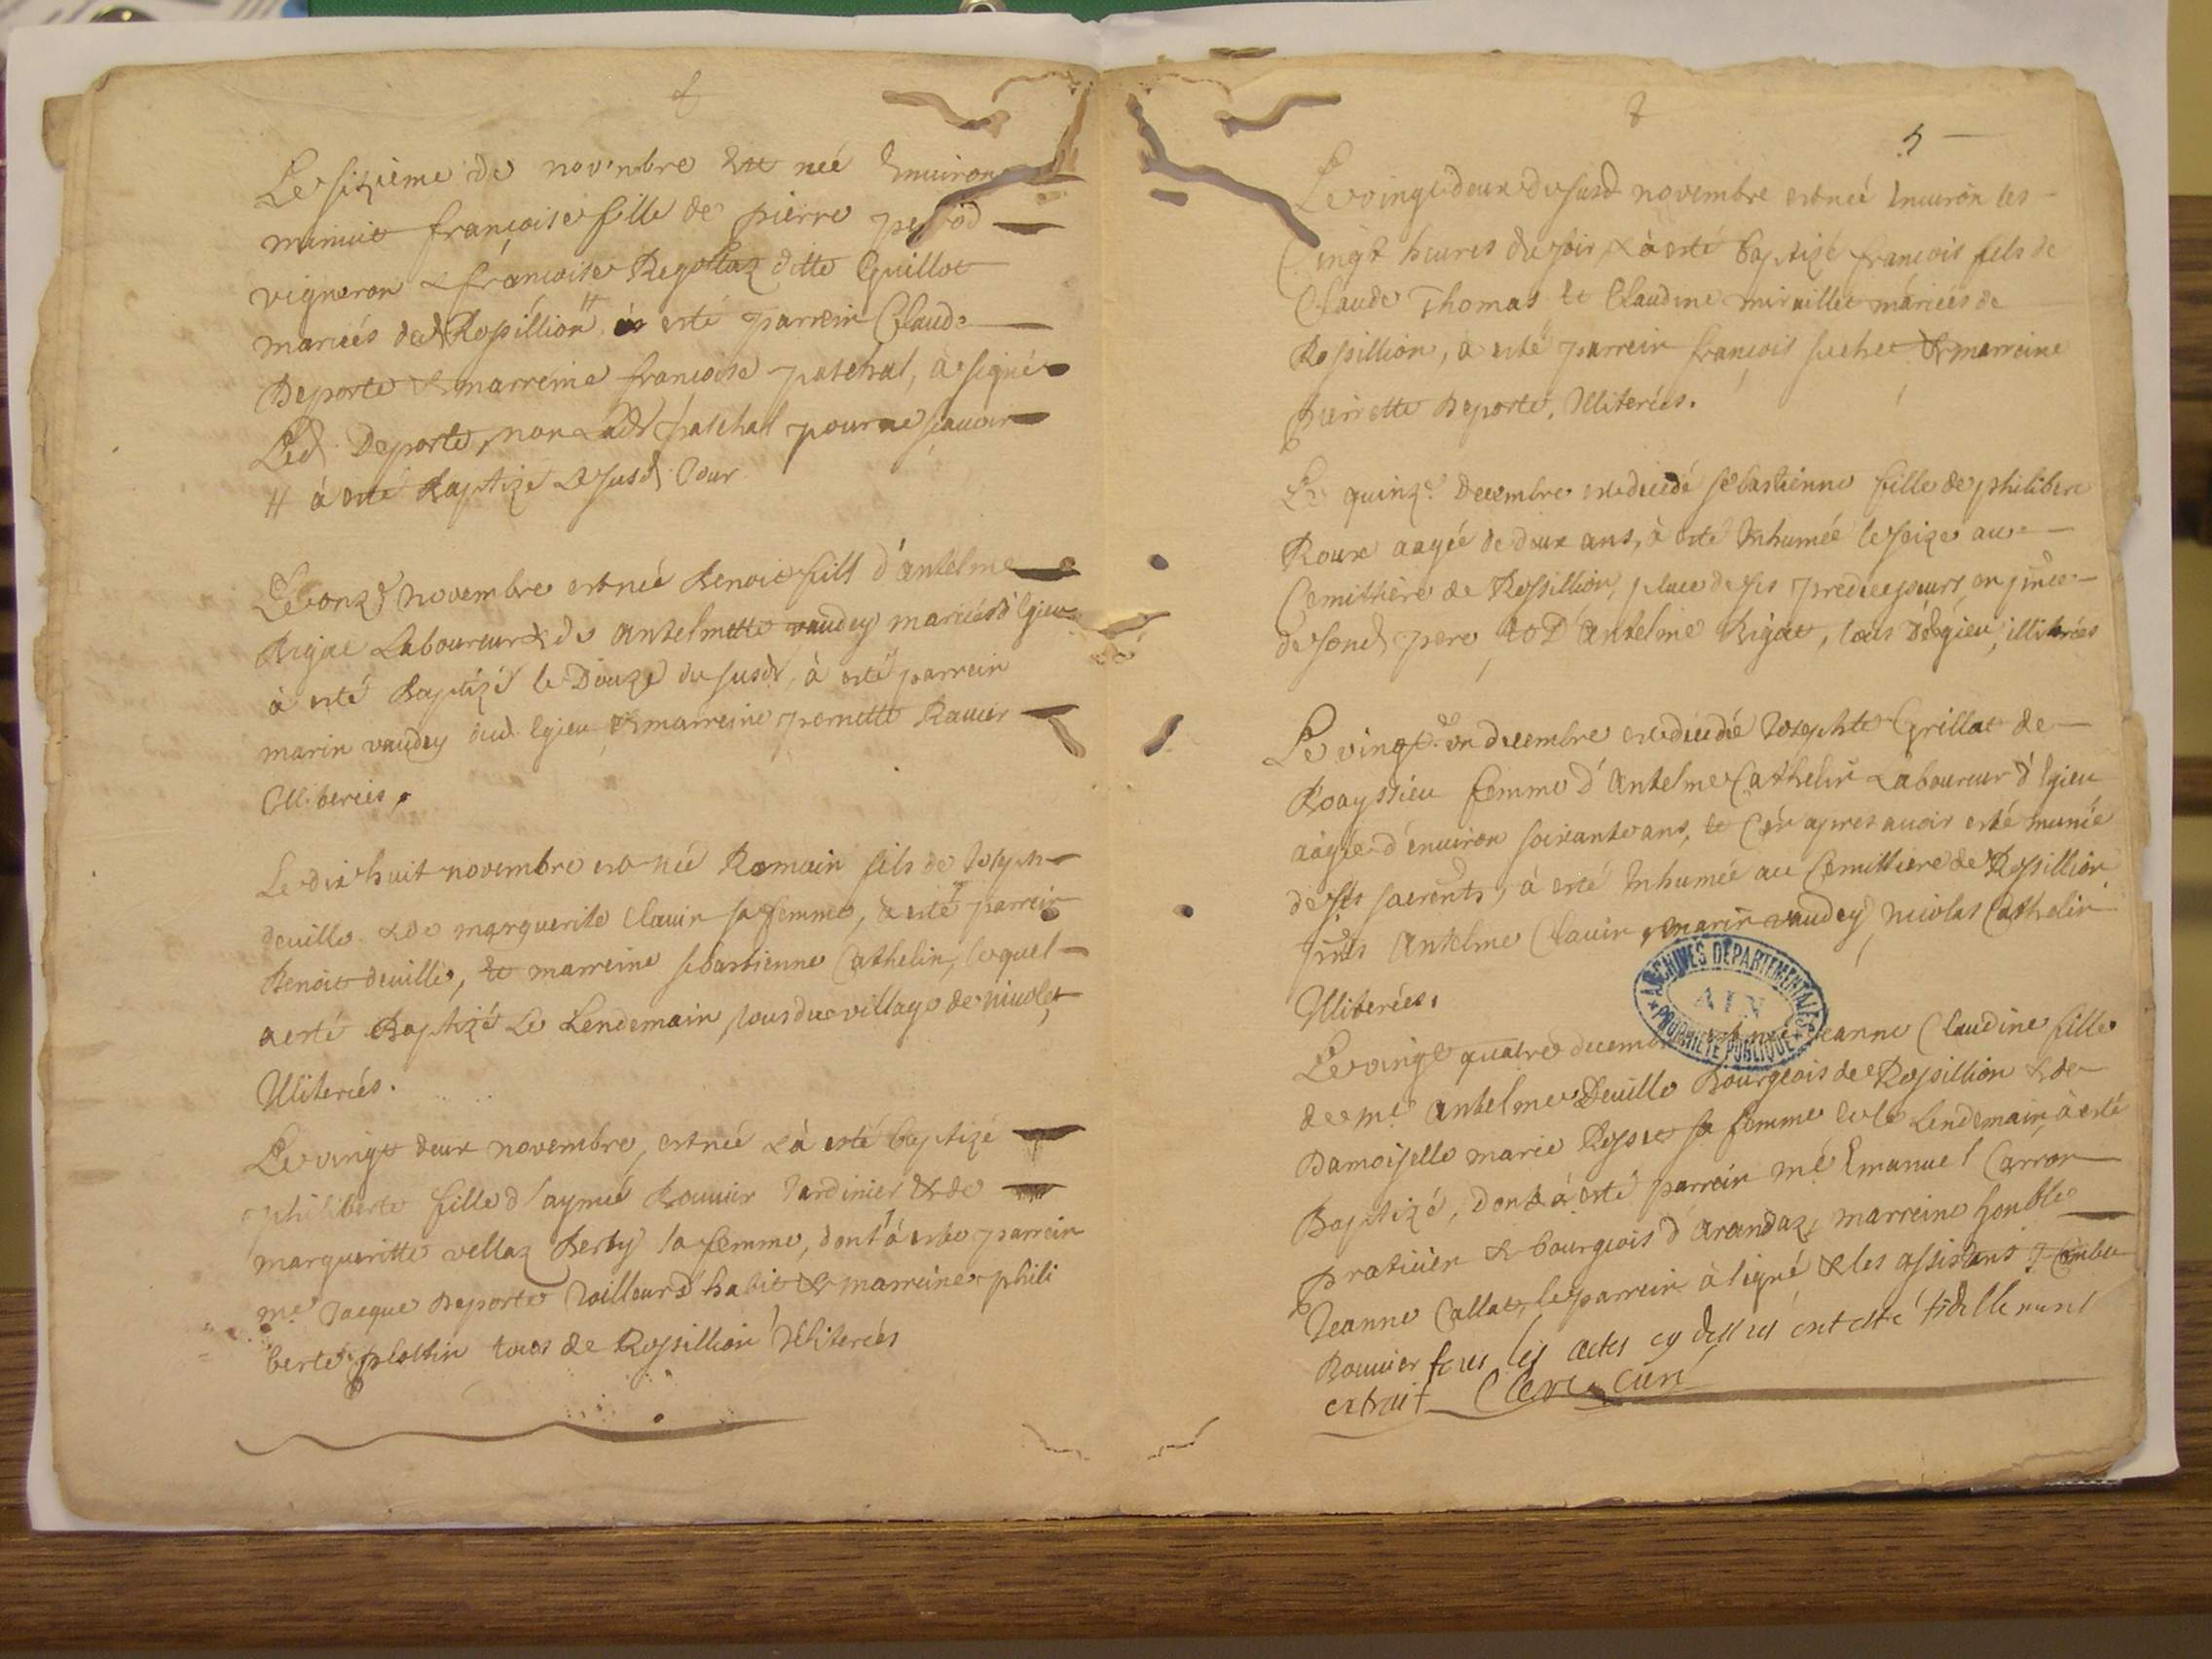 Le sizieme de novembre est neé Environ
minuit françoise fille de pierre
vigneron & françoise Regottaz ditte Guillot
mariés de Rossillion # a esté parrein Claude
Deporte & marreine francoise paschal, a signé
Led. Deporte, non Lad. paschal pour ne sçavoir
# à esté Baptizé Le susd. Jour
Le onz.e novembre est neé Benoit fils d'antelme
Rigat Laboureur & de antelmette vaudey mariés d'Egieu
à esté Baptizé le Douze du susd., à esté parrein
marin vaudey dud. Egieu & marreine pernette Ravier
Illiterées.
Le dix huit novembre est neé Romain fils de Joseph
deville & de marguerite Clavin sa femme, à esté parrein
Benoit deville, et marreine sebastienne Cathelin, lequel
a esté Baptizé Le Lendemain, tous du village de nivolet
Illiterées.
Le vingt deux novembre, est neé & à esté baptizé
philiberte fille d'aymé Bouvier Jardinier & de
margueritte vellaz Berby sa femme, dont à esté parrein
me. Jacque Deporte Tailleur d'habit & marreine phili
berte plottin tous de Rossillion Illiterées
5
Le vingt deux du susd novembre est neé Environ les
Cinq heures du soir, & à esté baptizé françois fils de
Claude Thomas et Claudine miraillet mariées de
Rossillion, à esté parrein françois suchet & marreine
pierrette Deporte, Illiterées.
Le quinz.e Decembre est decedé sebastienne fille de philibert
Roux aagée de deux ans, à esté Inhumée le seize au
Cemittiere de Rossillion, place de ses predecesseurs, en pnce
de sond. pere, et D'antelme Rigat, tous D'Egieu, illiterées
Le vingt un decembre est decedée Josephte Grillat de
Roayssieu femme d'antelme Cathelin Laboureur d'Egieu
aagée d'environ soixante ans, et Ce apres avoir esté munie
de ses sacrents, à esté Inhumée au Cemittiere de Rossillion
pnts antelme Clavin, marin vaudey, nicolas Cathelin
Illiterées.
Le vingt quatre decembre est neé Jeanne Claudine fille
de me. antelme Deville Bourgeois de Rossillion & de
Damoiselle marie Rosset sa femme et le Lendemain à esté
Baptizé, dont à esté parrein me. Emanuel Carron
praticien & bourgeois d'arandaz, marreine honble
Jeanne Callat, le parrein à signé & les assistans
Bouvier tous les actes cy dessus ont esté fidellement
extrait Clerc Curé
ARCHIVES DEPARTEMENTALES
AIN
PROPRIETE PUBLIQUE